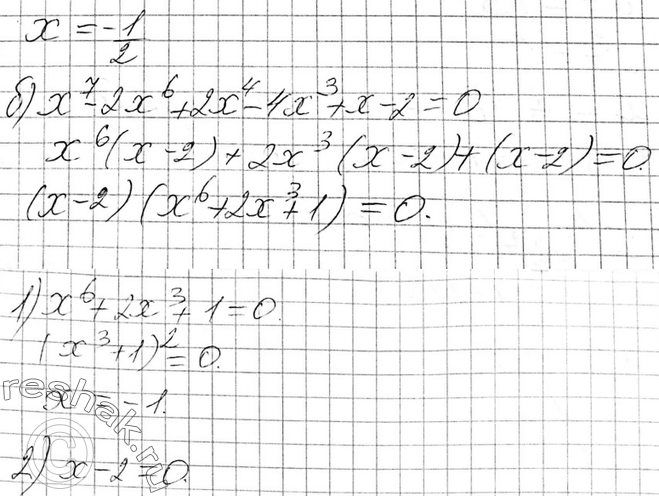 x = -1/2
б) x⁷ - 2x⁶ + 2x⁴ - 4x³ + x - 2 = 0
x⁶(x - 2) + 2x³(x - 2) + (x - 2) = 0.
(x - 2)(x⁶ + 2x³ + 1) = 0.
1) x⁶ + 2x³ + 1 = 0.
(x³ + 1)² = 0.
x = -1.
2) x - 2 = 0.
reshak.ru